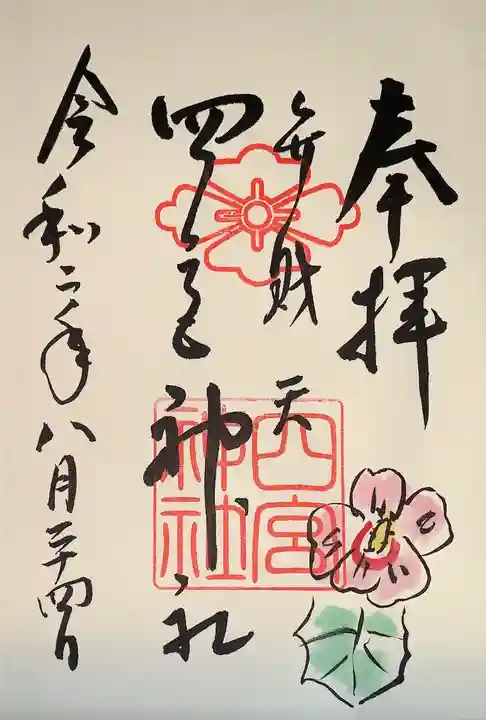 奉拝
弁財天
四宮神社
四宮
神社
令和二年八月二十四日